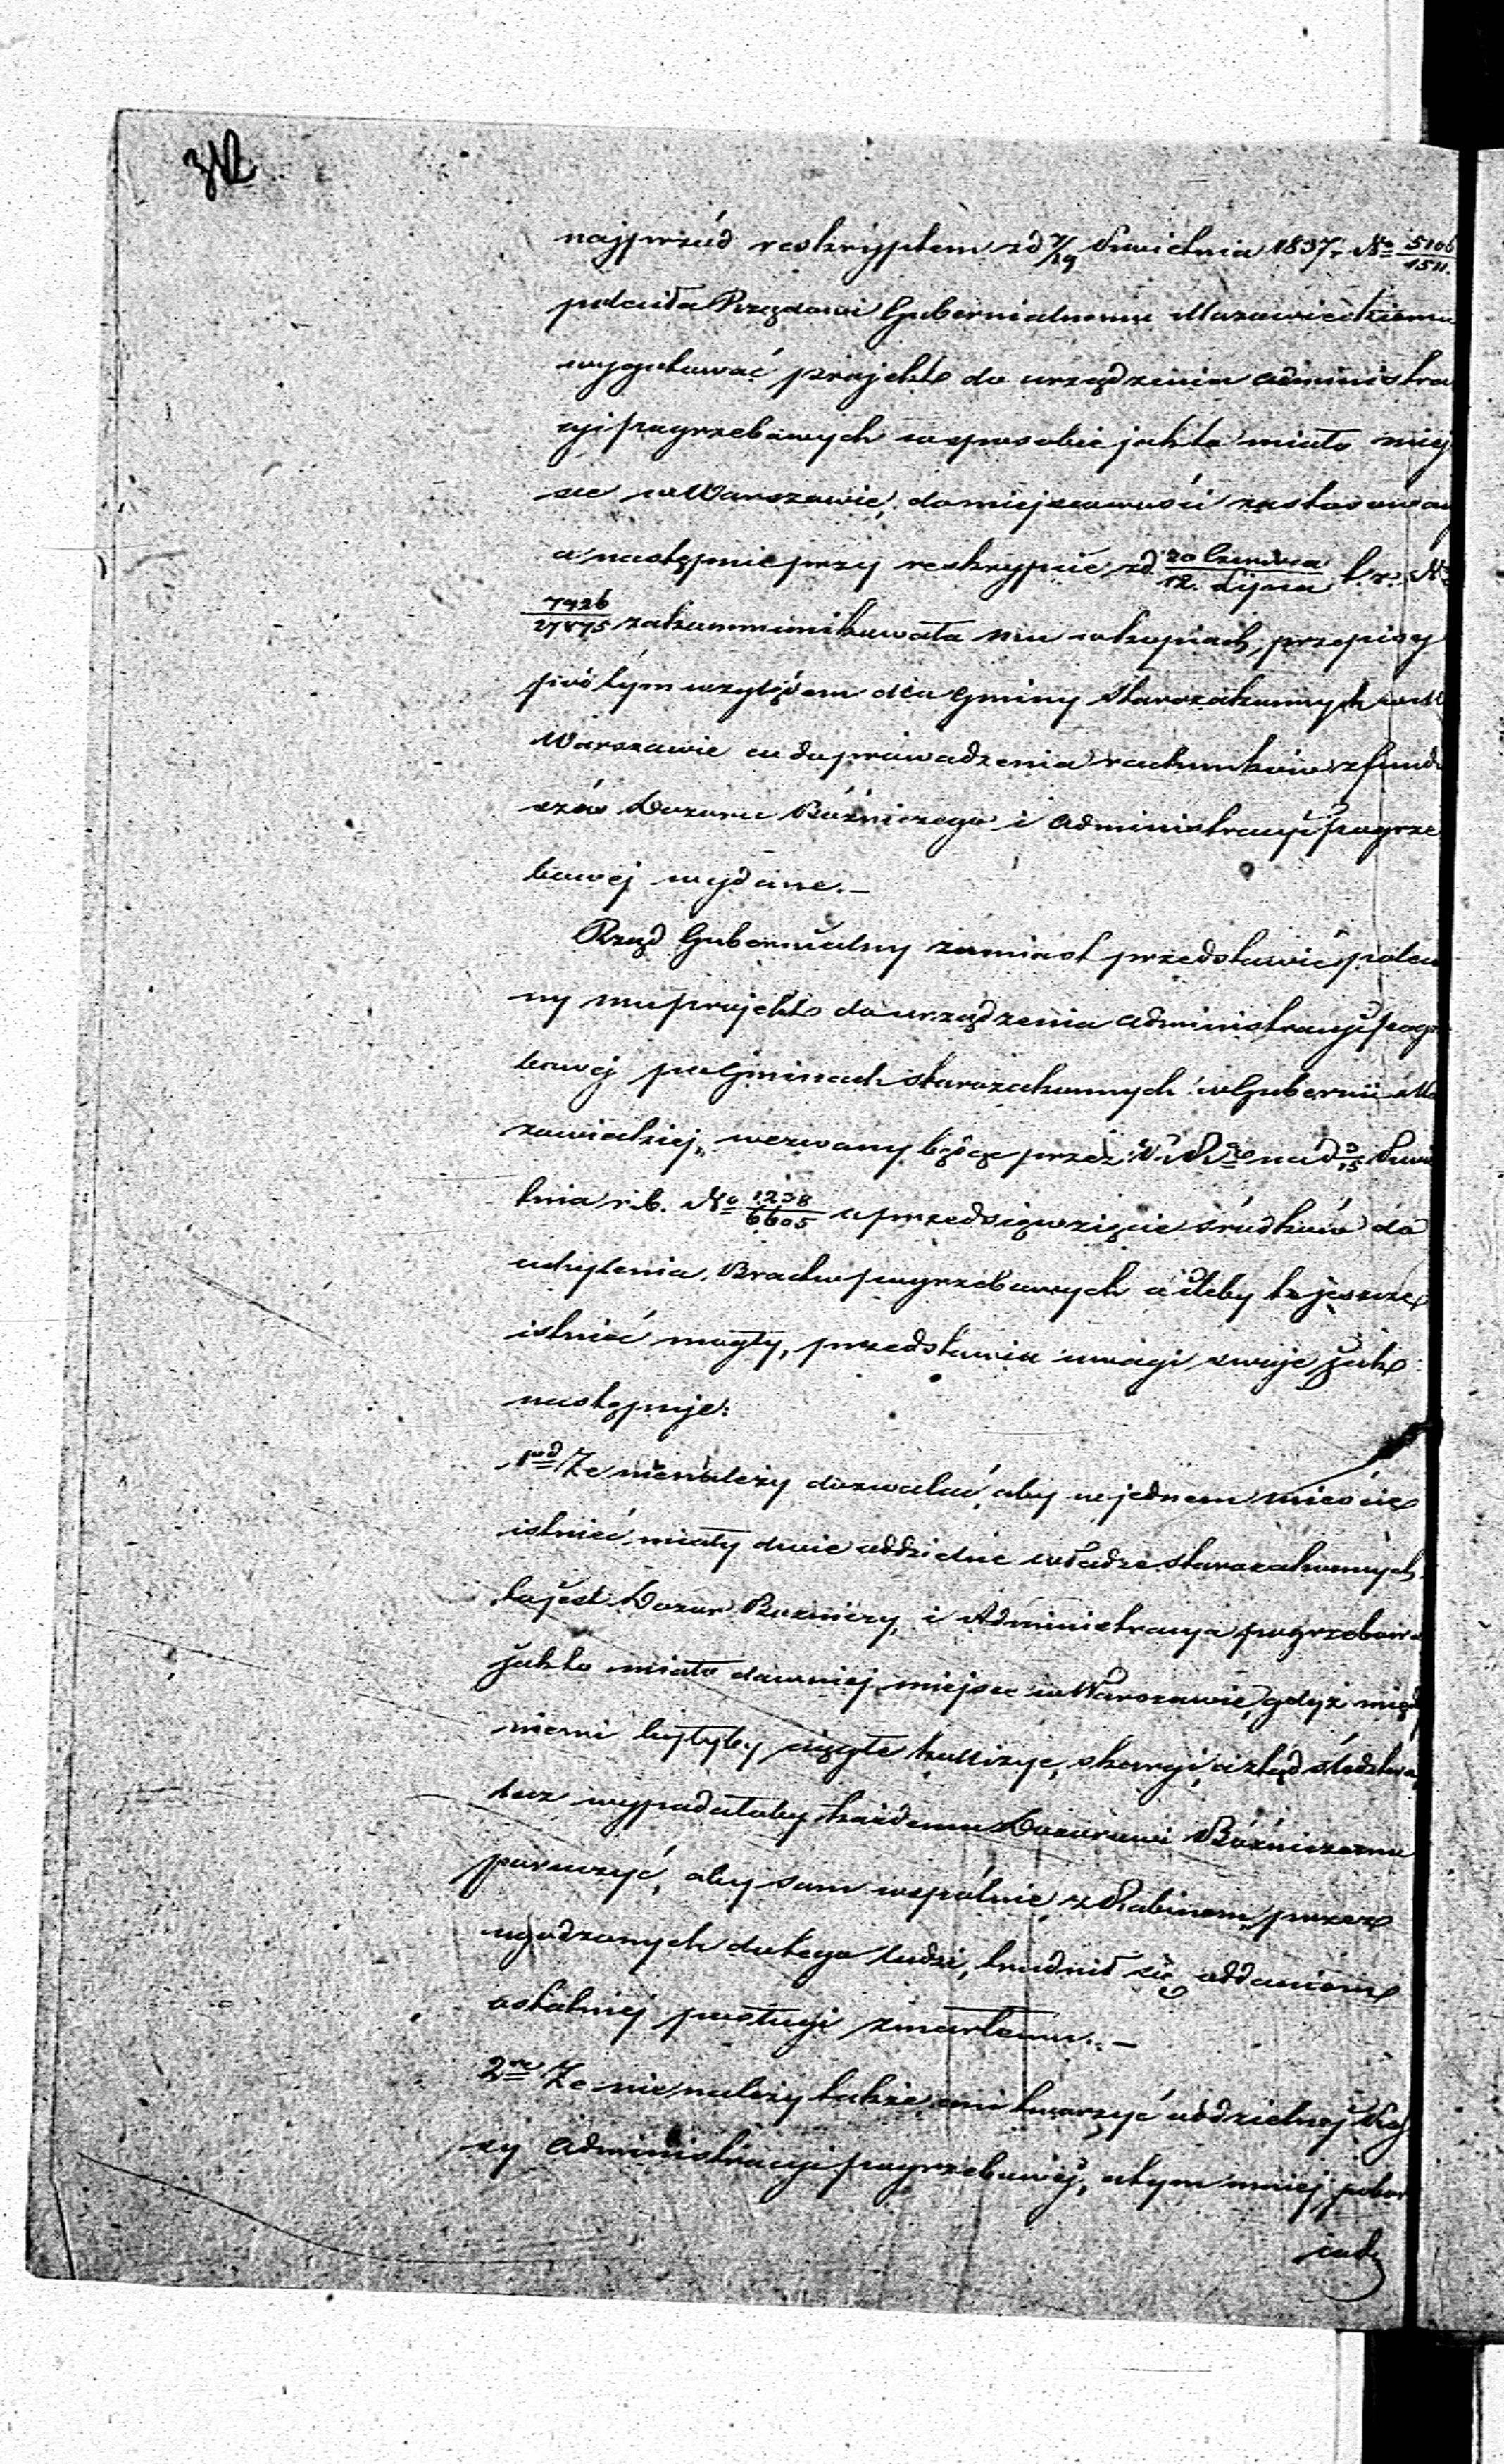 312
najprzód reskryptem z d 7/19 Kwietnia 1837 r. No 5106/1511.
poleciła Rządowi Gubernialnemu Mazowieckiemu
wygotować projekt do urządzenia administra
cyi pogrzebowych w sposobie jak to miało miej
sce w Warszawie, do miejscowości zastosowany
a następnie przy reskrypcie z d. 20 Czerwca/12. Lipca t. r. No
7426/27875 zakommunikowała mu w kopiach, przepisy
pod tym względem dla Gminy Starozakonnych w M
Warszawie co do prowadzenia rachunków z fundu
szów Dozoru Bóżniczego i Administracyi pogrze
bowej wydane.—
Rząd Gubernialny zamiast przedstawić poleco
ny mu projekt do urządzenia administracyi pogrz
bowej po Gminach starozakonnych w Gubernii Ma
zowieckiej, wezwany będąc przez na d 3/15 Kwie
tnia r. b. No 1238/6605 o przedsięwzięcie środków do
uchylenia Bractw pogrzebowych o ileby te jeszcze
istnieć mogły, przedstawia uwagi swoje jak
następuje:
1od Że nienależy dozwalać, aby w jednem mieście
istnieć miały dwie oddzielne władze starozakonnych
to jest Dozor Bożniczy, i Administracya pogrzebowa
jak to miało dawniej miejsce w Warszawie, gdyż między
niemi byłyby ciągłe kollizye, skargi, a ztąd śledztwa,
lecz wypadałoby każdemu Dozorowi Bóżniczemu
poruczyć, aby sam wspólnie z Rabinem, przez
ugodzonych do tego ludzi, trudnił się oddaniem
ostatniej posługi zmarłemu.—
2re Że nie należy także ani tworzyć oddzielnej Kas
sy Administracyi pogrzebowej, a tym mniej pobor